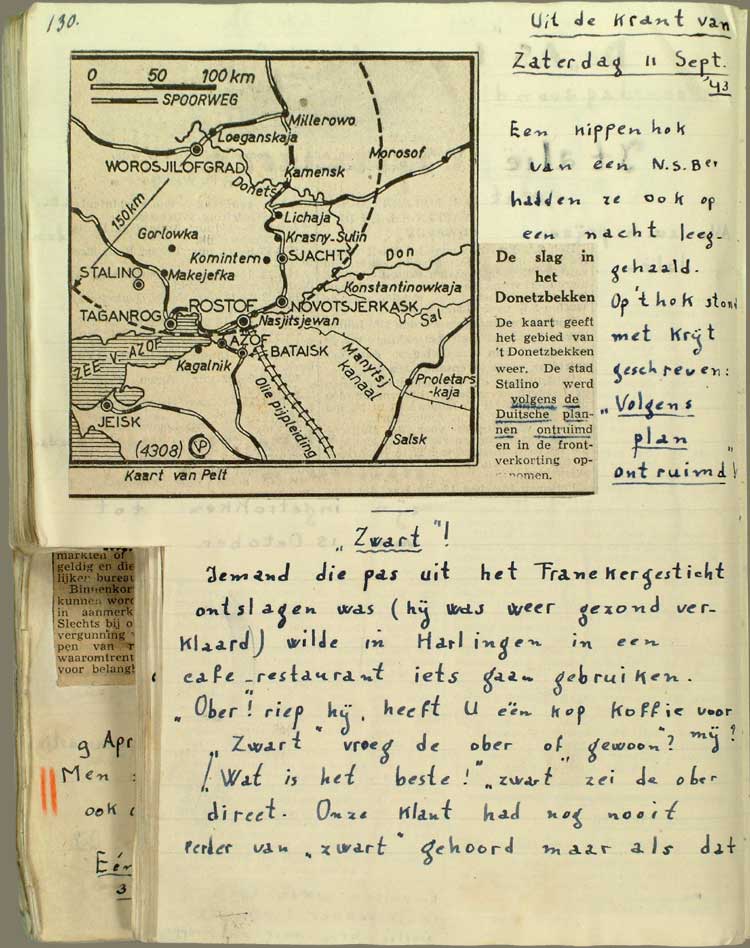 130.
Uit de krant van
Zaterdag 11 Sept.
'43
0 50 100 km
SPOORWEG
Millerowo
Loeganskaja
WOROSJILOFGRAD
Morosof
Kamensk
Donets
150 km
Lichaja
Gorlowka
Krasny-Sulin
Komintern
SJACHT
Don
STALINO
Makejefka
Konstantinowkaja
TAGANROG
ROSTOF
NOVOTSJERKASK
Nasjitsjewan
Sal
ZEE V. AZOF
AZOF
BATAISK
Kagalnik
Manytsj
kanaal
Olie pijpleiding
Proletars-
kaja
JEISK
(4308)
VP
Salsk
Kaart van Pelt
De slag in
het
Donetzbekken
De kaart geeft
het gebied van
't Donetzbekken
weer. De stad
Stalino werd
volgens de
Duitsche plan-
nen ontruimd
en in de front-
verkorting op-
genomen.
Een kippenhok
van een N.S.Ber
hadden ze ook op
een nacht leeg-
gehaald.
Op 't hok stond
met krijt
geschreven:
„Volgens
plan
ontruimd"!
„Zwart"!
Iemand die pas uit het Franekergesticht
ontslagen was (hij was weer gezond ver-
klaard) wilde in Harlingen in een
cafe-restaurant iets gaan gebruiken.
„Ober"! riep hij, heeft U één kop koffie voor
mij?
„Zwart" vroeg de ober of „gewoon"?
Wat is het beste! „zwart" zei de ober
direct. Onze klant had nog nooit
eerder van „zwart" gehoord maar als dat
markten of
geldig en die
lijker bureau
Binnenkor
kunnen word
in aanmerk
Slechts bij o
vergunning
pen van r
waaromtrent
voor belang
9 Apr
Men
ook
Eén
3